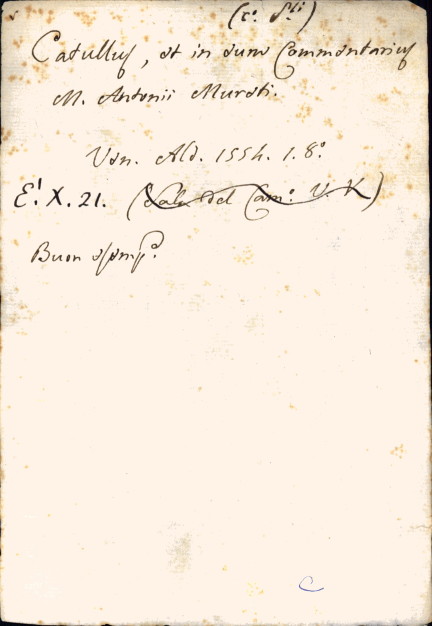 Catullus, et in eum Commentarius
M. Antonii Mureti.
Ven. Ald. 1554. 1. 8°.
E! X. 21. (Sala del Cam.° V. K)
Buon esemp.°
C